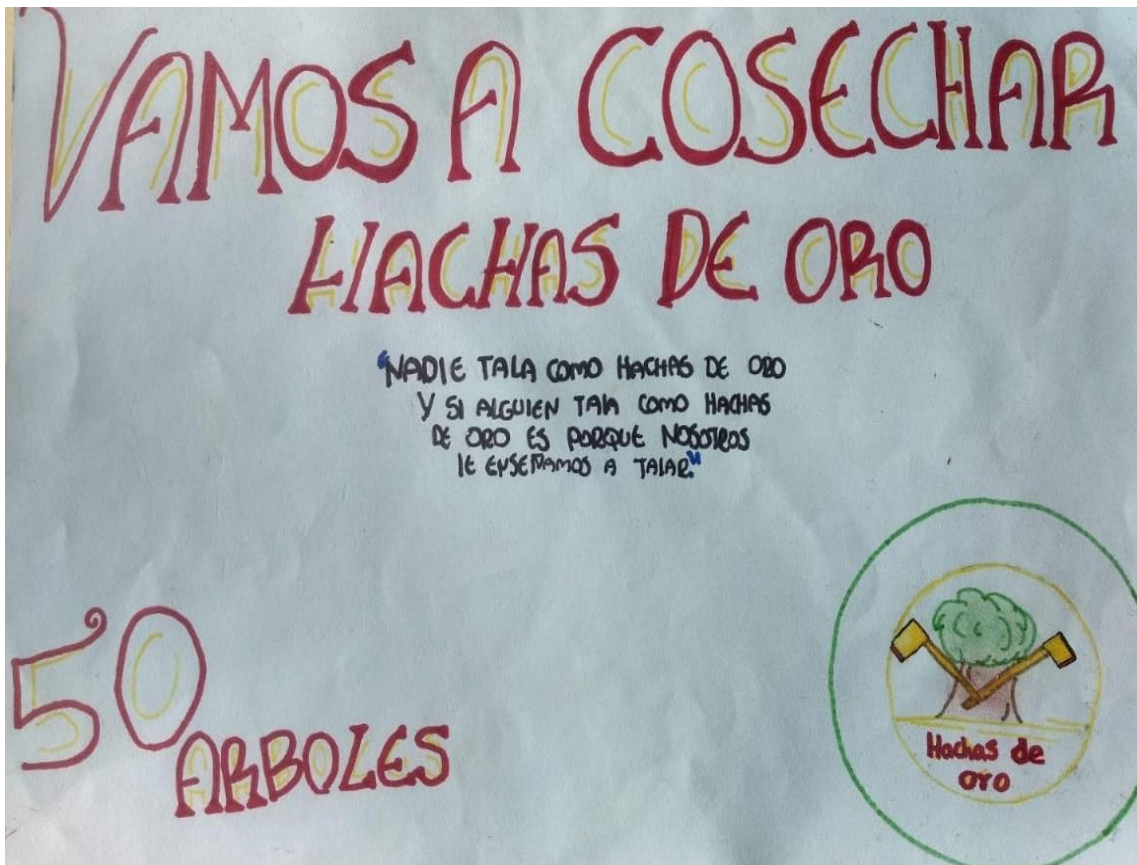 VAMOS A COSECHAR
HACHAS DE ORO
"NADIE TALA COMO HACHAS DE ORO
Y SI ALGUIEN TALA COMO HACHAS
DE ORO ES PORQUE NOSOTROS
LE ENSEÑAMOS A TALAR"
50
ARBOLES
Hachas de
oro